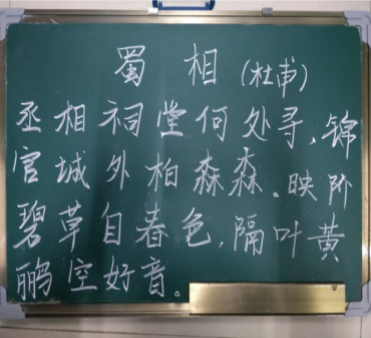 蜀相(杜甫)
丞相祠堂何处寻,锦
官城外柏森森。映阶
碧草自春色,隔叶黄
鹂空好音。